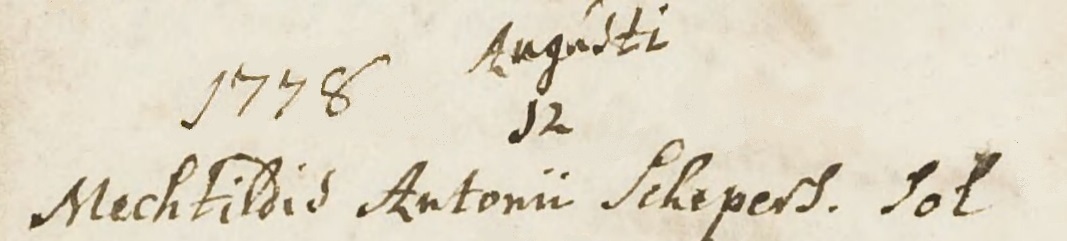 1778 Augusti
12
Mechtildis Antonii Schepers. sol